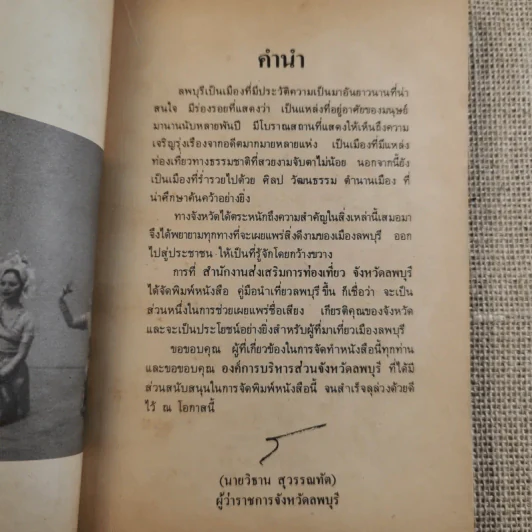 คำนำ
ลพบุรีเป็นเมืองที่มีประวัติความเป็นมาอันยาวนานที่น่า
สนใจ มีร่องรอยที่แสดงว่า เป็นแหล่งที่อยู่อาศัยของมนุษย์
มานานนับหลายพันปี มีโบราณสถานที่แสดงให้เห็นถึงความ
เจริญรุ่งเรืองจากอดีตมากมายหลายแห่ง เป็นเมืองที่มีแหล่ง
ท่องเที่ยวทางธรรมชาติที่สวยงามจับตาไม่น้อย นอกจากนี้ยัง
เป็นเมืองที่ร่ำรวยไปด้วย ศิลป วัฒนธรรม ตำนานเมือง ที่
น่าศึกษาค้นคว้าอย่างยิ่ง
ทางจังหวัดได้ตระหนักถึงความสำคัญในสิ่งเหล่านี้เสมอมา
จึงได้พยายามทุกทางที่จะเผยแพร่สิ่งดีงามของเมืองลพบุรี ออก
ไปสู่ประชาชน ให้เป็นที่รู้จักโดยกว้างขวาง
การที่ สำนักงานส่งเสริมการท่องเที่ยว จังหวัดลพบุรี
ได้จัดพิมพ์หนังสือ คู่มือนำเที่ยวลพบุรี ขึ้น ก็เชื่อว่า จะเป็น
ส่วนหนึ่งในการช่วยเผยแพร่ชื่อเสียง เกียรติคุณของจังหวัด
และจะเป็นประโยชน์อย่างยิ่งสำหรับผู้ที่มาเที่ยวเมืองลพบุรี
ขอขอบคุณ ผู้ที่เกี่ยวข้องในการจัดทำหนังสือนี้ทุกท่าน
และขอขอบคุณ องค์การบริหารส่วนจังหวัดลพบุรี ที่ได้มี
ส่วนสนับสนุนในการจัดพิมพ์หนังสือนี้ จนสำเร็จลุล่วงด้วยดี
ไว้ ณ โอกาสนี้
(นายวิธาน สุวรรณทัต)
ผู้ว่าราชการจังหวัดลพบุรี